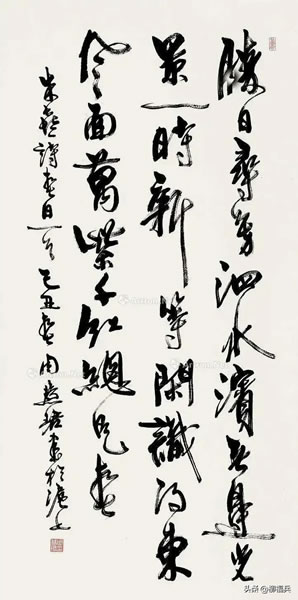 勝日尋芳泗水濱無邊光
景一時新等閑識得東
風面萬紫千紅總是春
朱熹詩春日一首 己丑春周慧珺書於滬上
头条